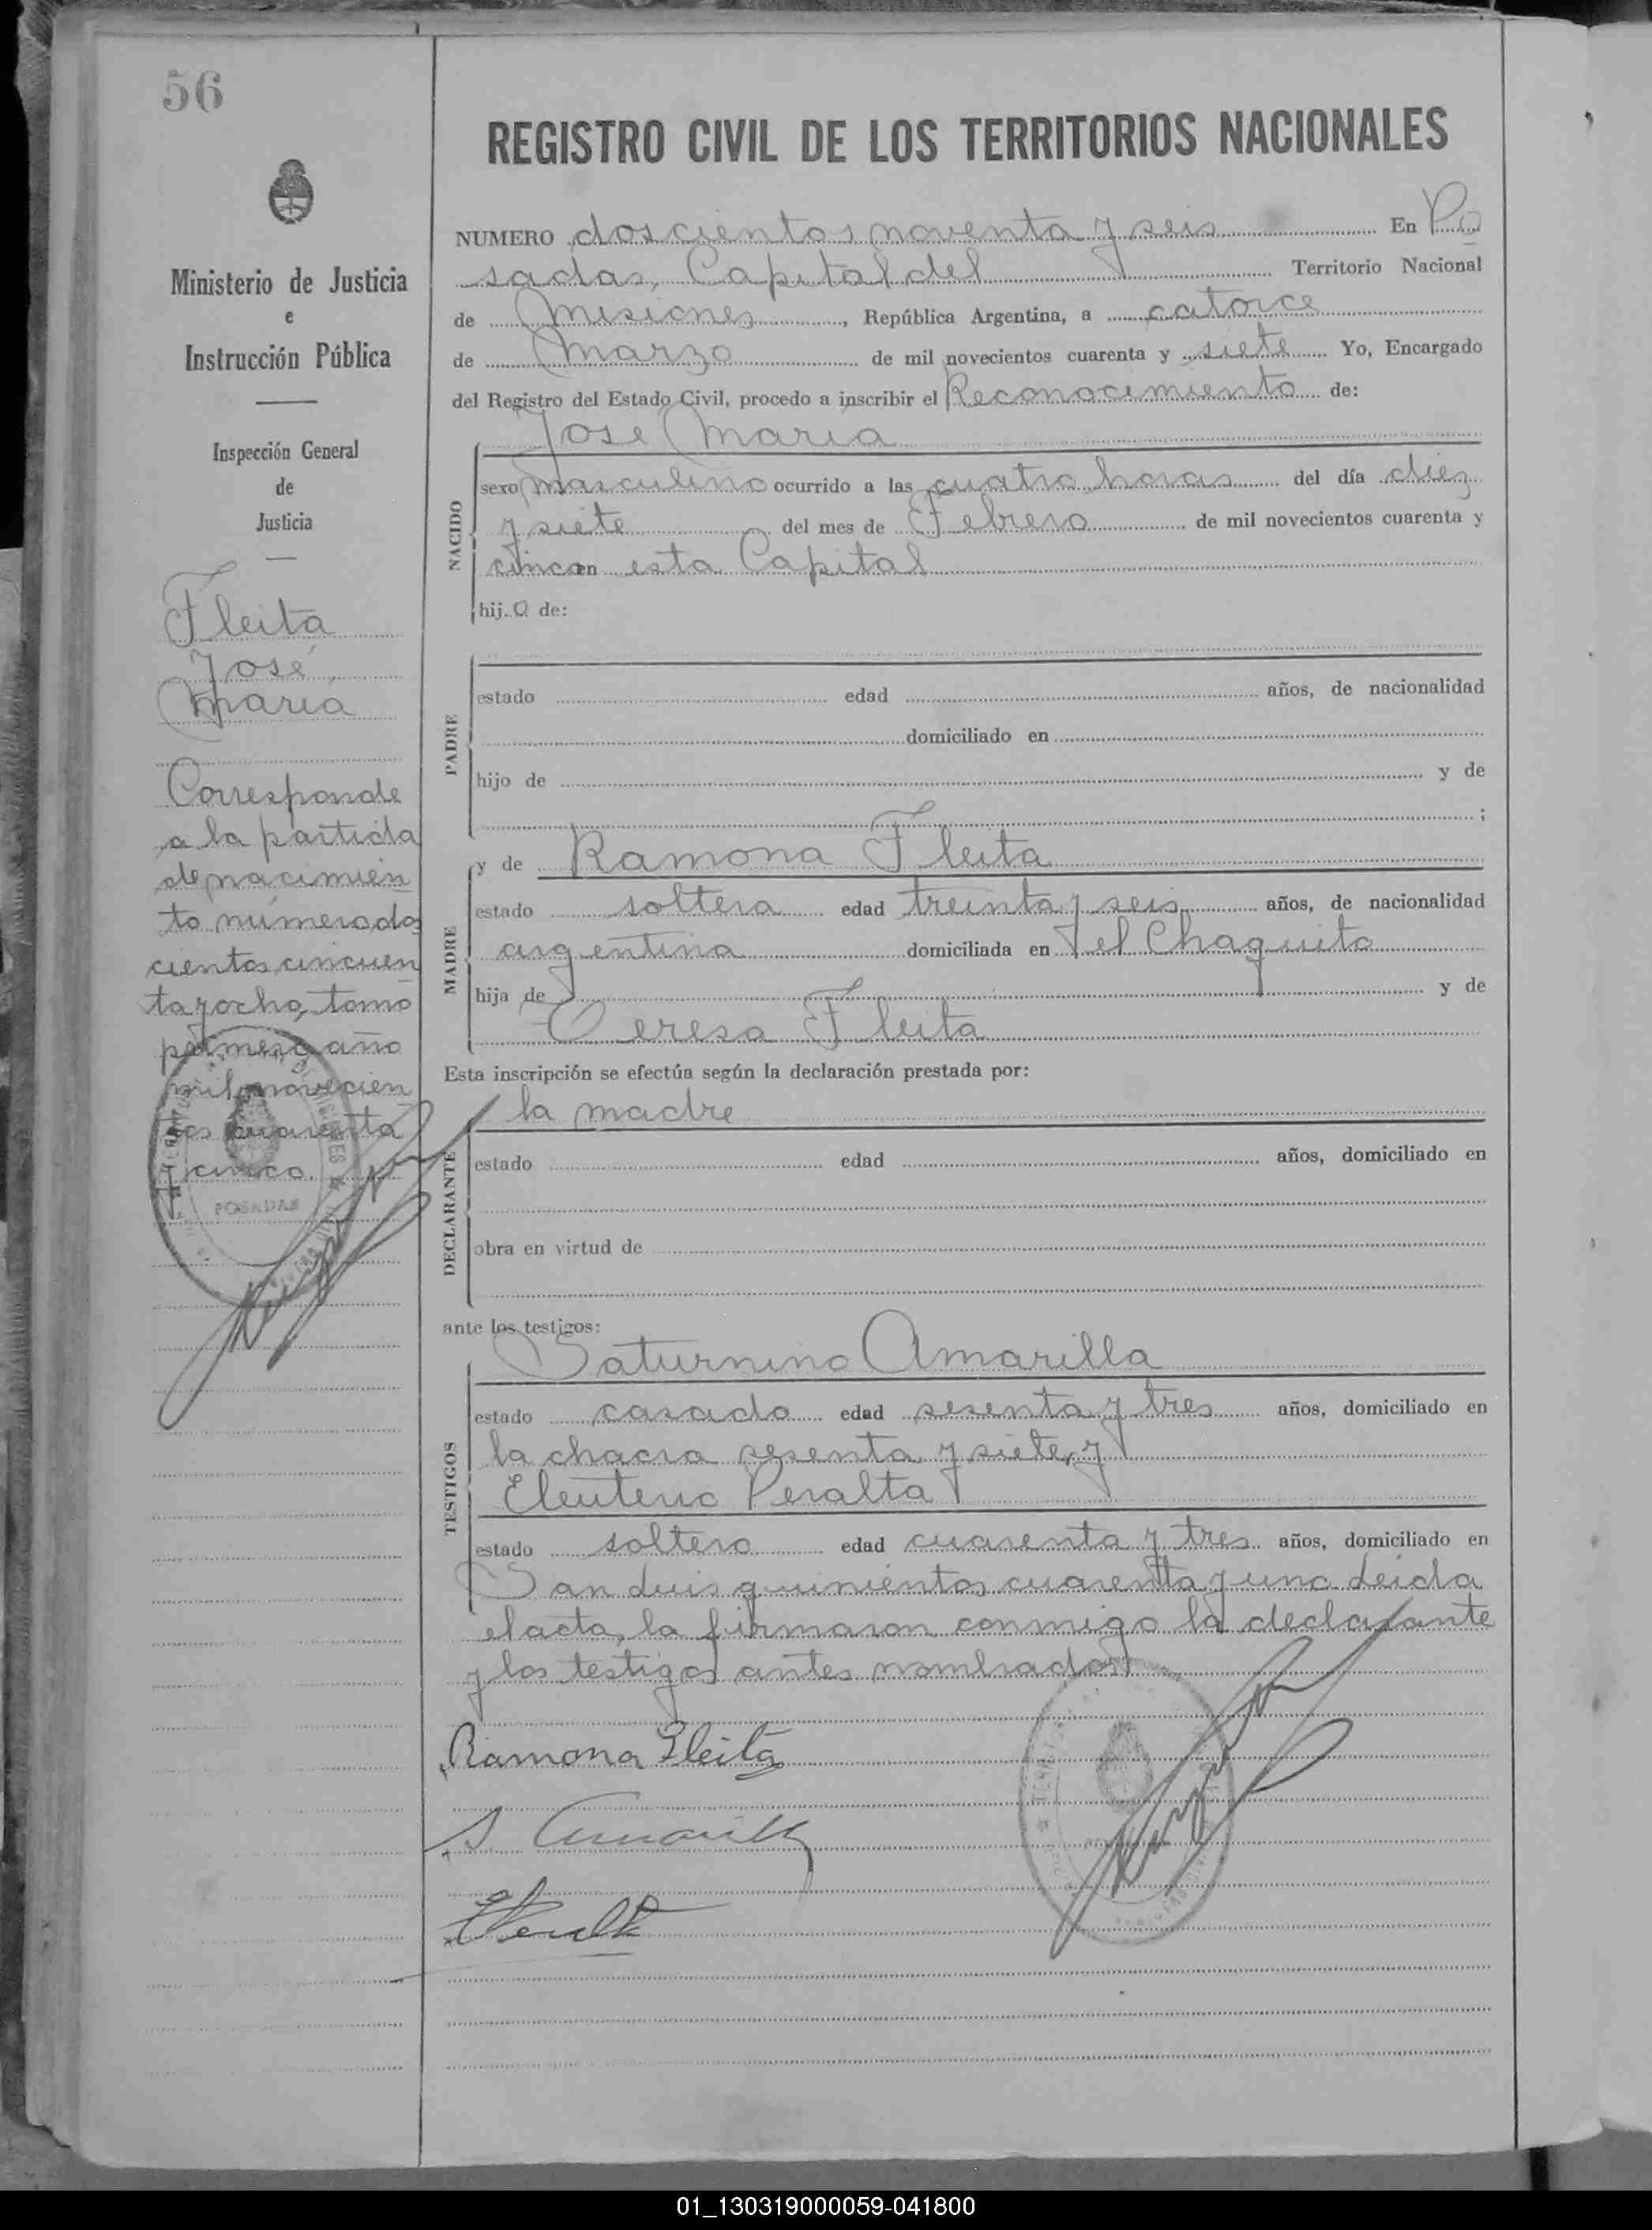 56
Ministerio de Justicia
e
Instrucción Pública
Inspección General
de
Justicia
Fleita
José
María
Corresponde
a la partida
de nacimien
to número dos
cientos cincuen
ta y ocho, tomo
primero año
mil novecien
tos cuarenta
y cinco.
POSADAS
REGISTRO CIVIL DE LOS TERRITORIOS NACIONALES
NUMERO doscientos noventa y seis En Po
sadas, Capital del Territorio Nacional
de Misiones, República Argentina, a catorce
de Marzo de mil novecientos cuarenta y siete Yo, Encargado
del Registro del Estado Civil, procedo a inscribir el Reconocimiento de:
José María
NACIDO
sexo masculino ocurrido a las cuatro horas del día diez
y siete del mes de Febrero de mil novecientos cuarenta y
cinco en esta Capital
hijo de:
PADRE
estado edad años, de nacionalidad
domiciliado en
hijo de y de
;
MADRE
y de Ramona Fleita
estado soltera edad treinta y seis años, de nacionalidad
argentina domiciliada en el Chaquito
hija de y de
Teresa Fleita
Esta inscripción se efectúa según la declaración prestada por:
la madre
DECLARANTE
estado edad años, domiciliado en
obra en virtud de
ante los testigos:
Saturnino Amarilla
TESTIGOS
estado casado edad sesenta y tres años, domiciliado en
la chacra sesenta y siete, y
Eleuterio Peralta
estado soltero edad cuarenta y tres años, domiciliado en
San Luis quinientos cuarenta y uno. Leida
el acta, la firmaron conmigo la declarante
y los testigos antes nombrados
Ramona Fleita
S. Amarilla
E Peralta
01_130319000059-041800